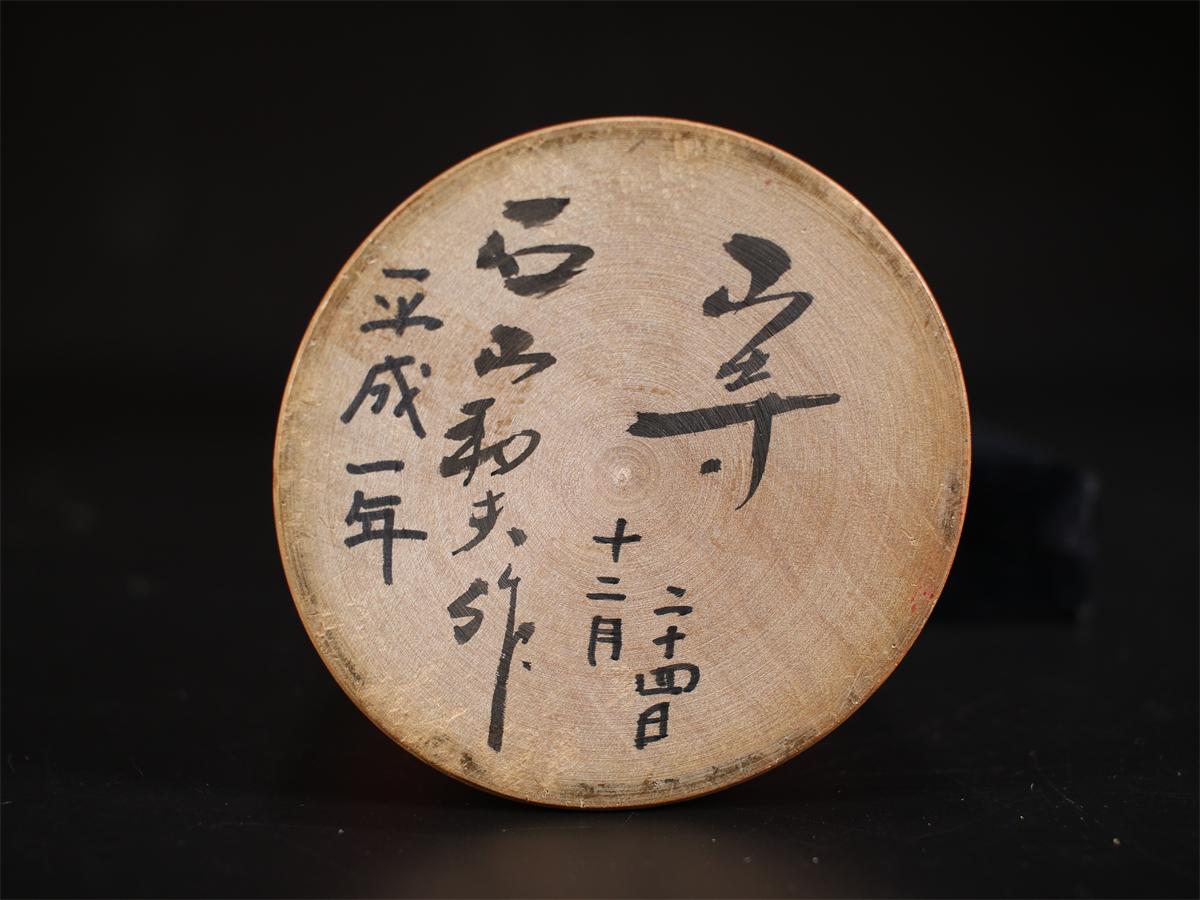 山寺
石山和夫作
平成一年
十二月
二十四日